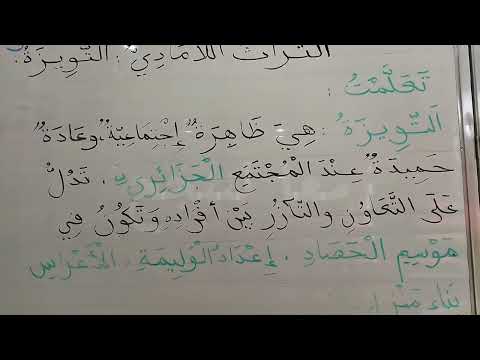 التُّرَاثُ اللَّامَادِّيُّ : التْوِيزَةُ.
تَعَلَّمْتُ :
التْوِيزَةُ : هِيَ ظَاهِرَةٌ إِجْتِمَاعِيَّةٌ وعَادَةٌ
حَمِيدَةٌ عِنْدَ الْمُجْتَمَعِ الْجَزَائِرِيِّ، تَدُلُّ
عَلَى التَّعَاوُنِ والتَّآزُرِ بَيْنَ أَفْرَادِهِ وَتَكُونُ فِي
مَوْسِمِ الْحَصَادِ، إِعْدَادُ الْوَلِيمَةِ، الْأَعْرَاسِ
بِنَاء مَنْزِل.